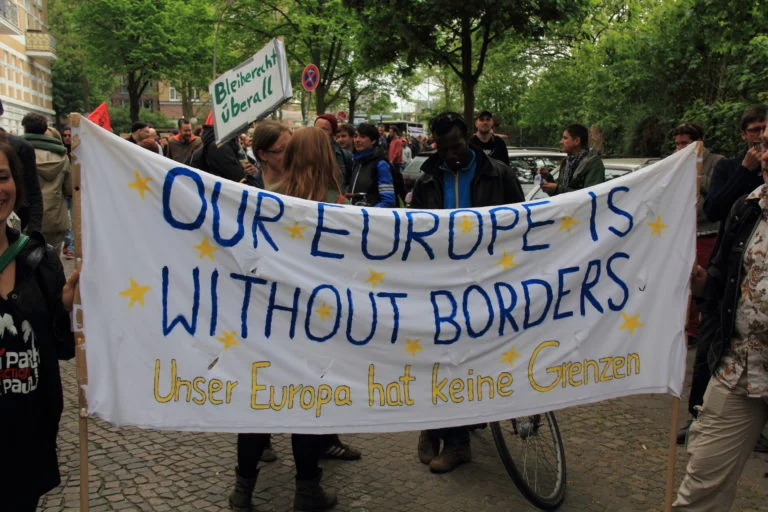 Bleiberecht
überall
OUR EUROPE IS
WITHOUT BORDERS
Unser Europa hat keine Grenzen
PAULI